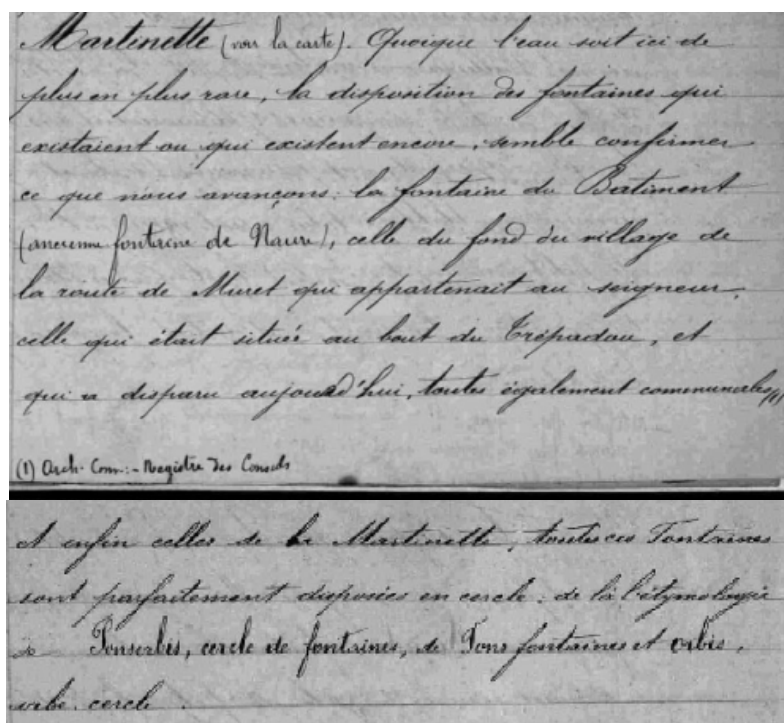 Martinette (voir la carte). Quoique l'eau soit ici de
plus en plus rare, la disposition des fontaines qui
existaient ou qui existent encore, semble confirmer
ce que nous avançons: la fontaine du Batiment
(ancienne fontaine de Naure), celle du fond du village de
la route de Muret qui appartenait au seigneur,
celle qui était située au bout du Trépadou, et
qui a disparu aujourd'hui, toutes également communales (1)
(1) Arch. Com:- Registre des Consuls
et enfin celles de la Martinette, toutes ces Fontaines
sont parfaitement disposées en cercle: de là l'étymologie
de Fonsorbis, cercle de fontaines, de Fons fontaines et orbis,
orbe, cercle.